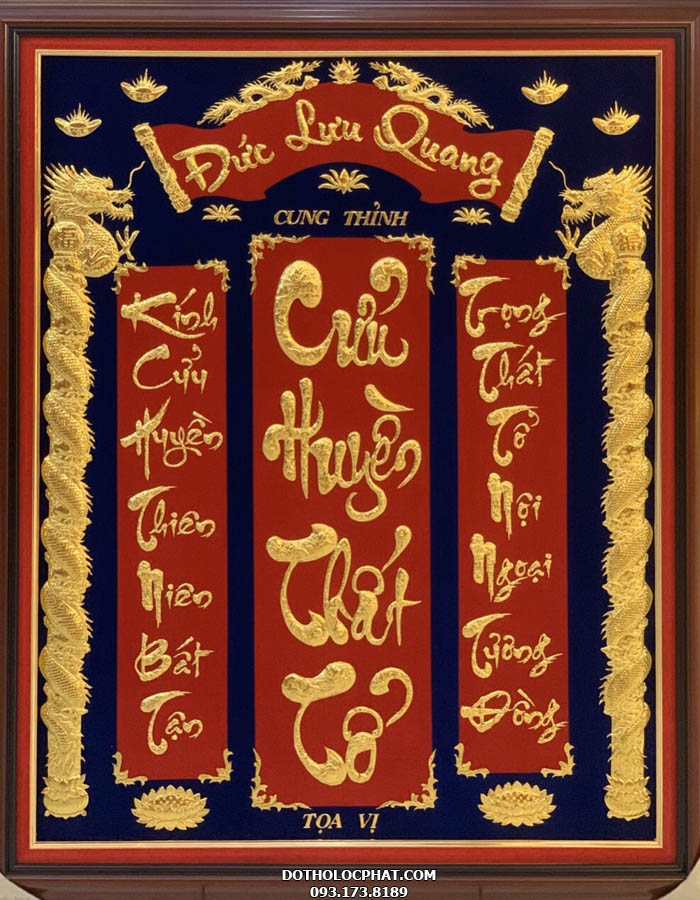 Đức Lưu Quang
CUNG THỈNH
福
福
Kính
Cửu
Huyền
Thiên
Niên
Bất
Tận
Cửu
Huyền
Thất
Tổ
Trọng
Thất
Tổ
Nội
Ngoại
Tương
Đồng
TỌA VỊ
DOTHOLOCPHAT.COM
093.173.8189